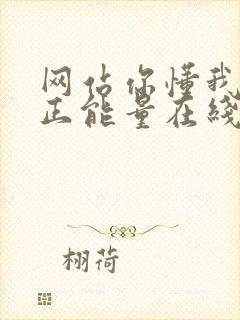 网站你懂我
正能量在线
栩荷